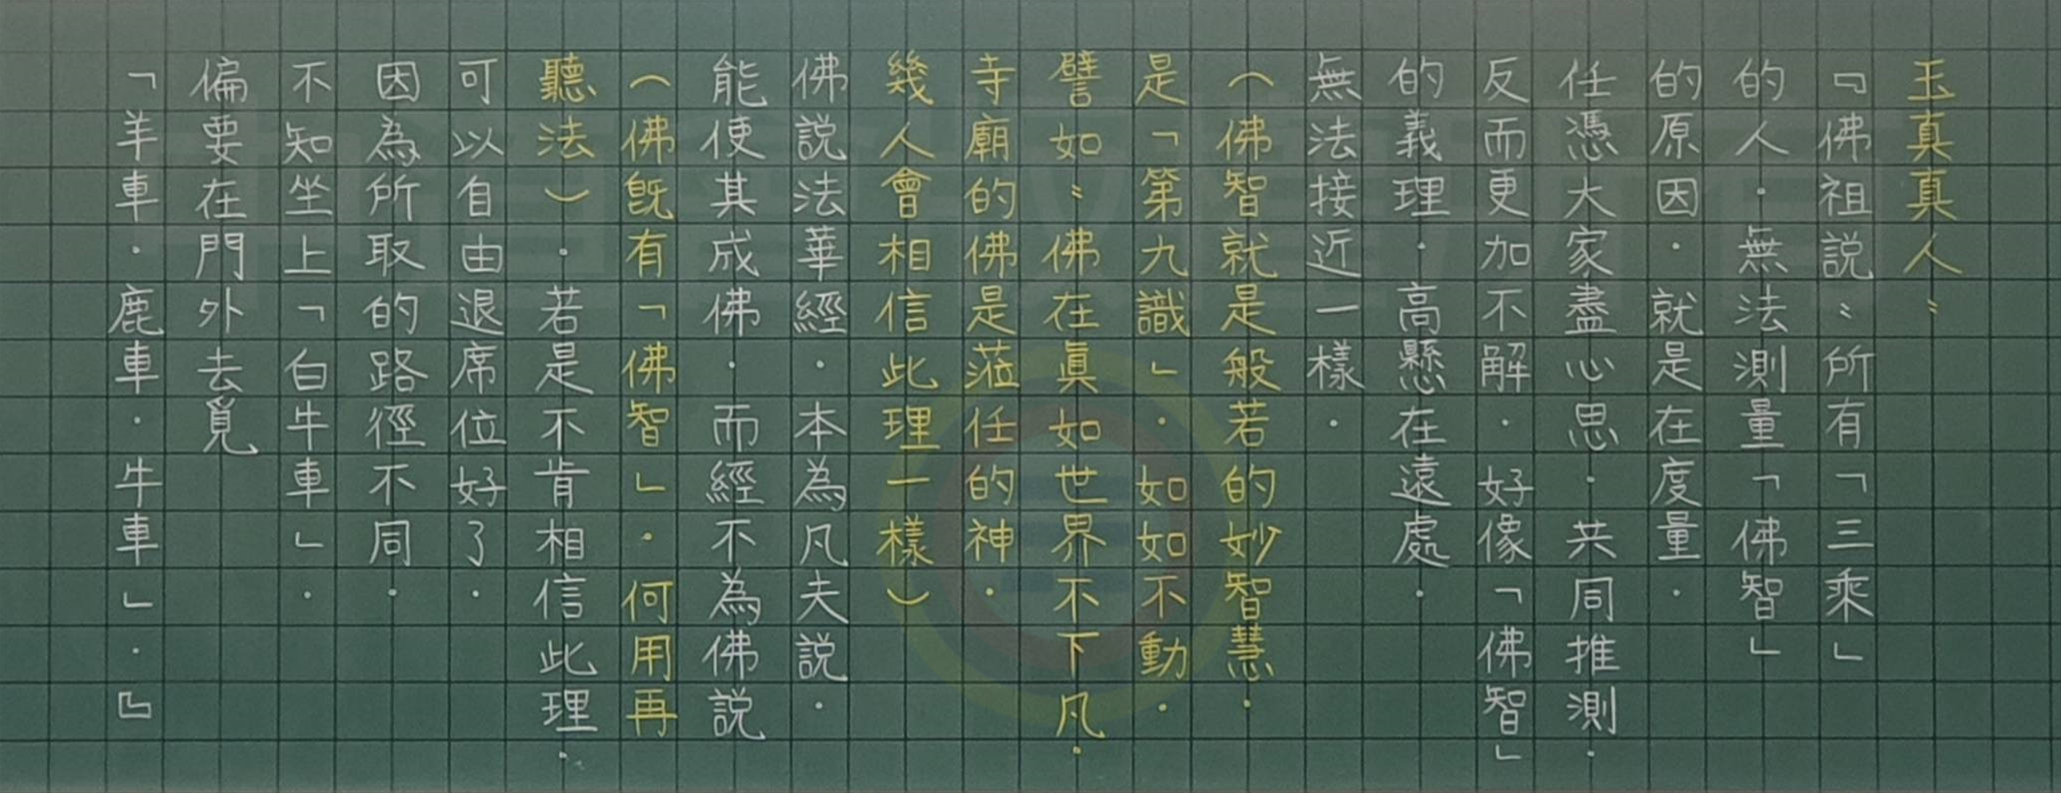 玉真真人：
『佛祖説：所有「三乘」
的人．無法測量「佛智」
的原因．就是在度量．
任憑大家盡心思．共同推測．
反而更加不解．好像「佛智」
的義理．高懸在遠處．
無法接近一樣．
（佛智就是般若的妙智慧．
是「第九識」．如如不動．
譬如：佛在真如世界不下凡．
寺廟的佛是蒞任的神．
幾人會相信此理一樣）
佛説法華經．本為凡夫説．
能使其成佛．而經不為佛説
（佛既有「佛智」．何用再
聽法）．若是不肯相信此理．
可以自由退席位好了．
因為所取的路徑不同．
不知坐上「白牛車」．
偏要在門外去覓
「羊車．鹿車．牛車」．』